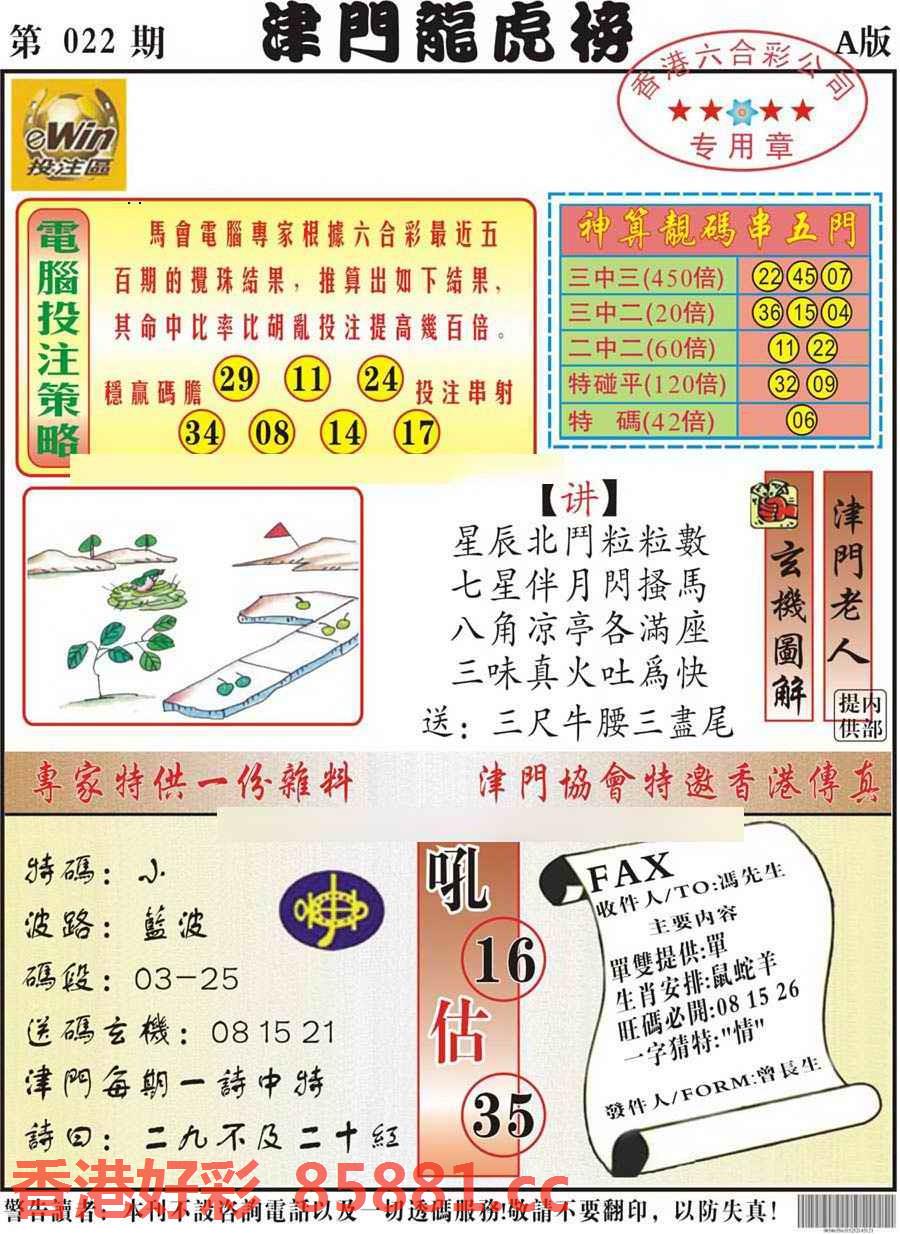 第 022 期
津門龍虎榜
A版
香港六合彩公司
★★★★
专用章
eWin
投注區
電腦投注策略
馬會電腦專家根據六合彩最近五
百期的攪珠結果，推算出如下結果，
其命中比率比胡亂投注提高幾百倍。
穩贏碼膽 29 11 24 投注串射
34 08 14 17
神算靚碼串五門
三中三(450倍) 22 45 07
三中二(20倍) 36 15 04
二中二(60倍) 11 22
特碰平(120倍) 32 09
特 碼(42倍) 06
【讲】
星辰北鬥粒粒數
七星伴月閃搔馬
八角凉亭各滿座
三味真火吐爲快
送：三尺牛腰三盡尾
玄機圖解
津門老人
内部提供
專家特供一份雜料
津門協會特邀香港傳真
特碼：小
波路：藍波
碼段：03-25
送碼玄機：08 15 21
津門每期一詩中特
詩曰：二九不及二十紅
吼
16
估
35
FAX
收件人/TO:馮先生
主要内容
單雙提供:單
生肖安排:鼠蛇羊
旺碼必開:08 15 26
一字猜特:"情"
發件人/FORM:曾長生
香港好彩 85881.cc
警告讀者：本刊不設咨詢電話以及一切透碼服務!敬請不要翻印，以防失真!